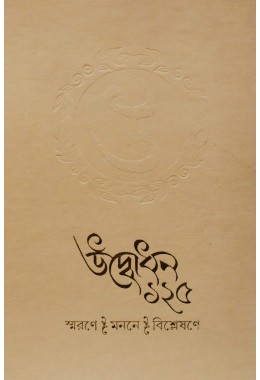 উদ্বোধন
১২৫
স্মরণে ❖ মননে ❖ বিশ্লেষণে